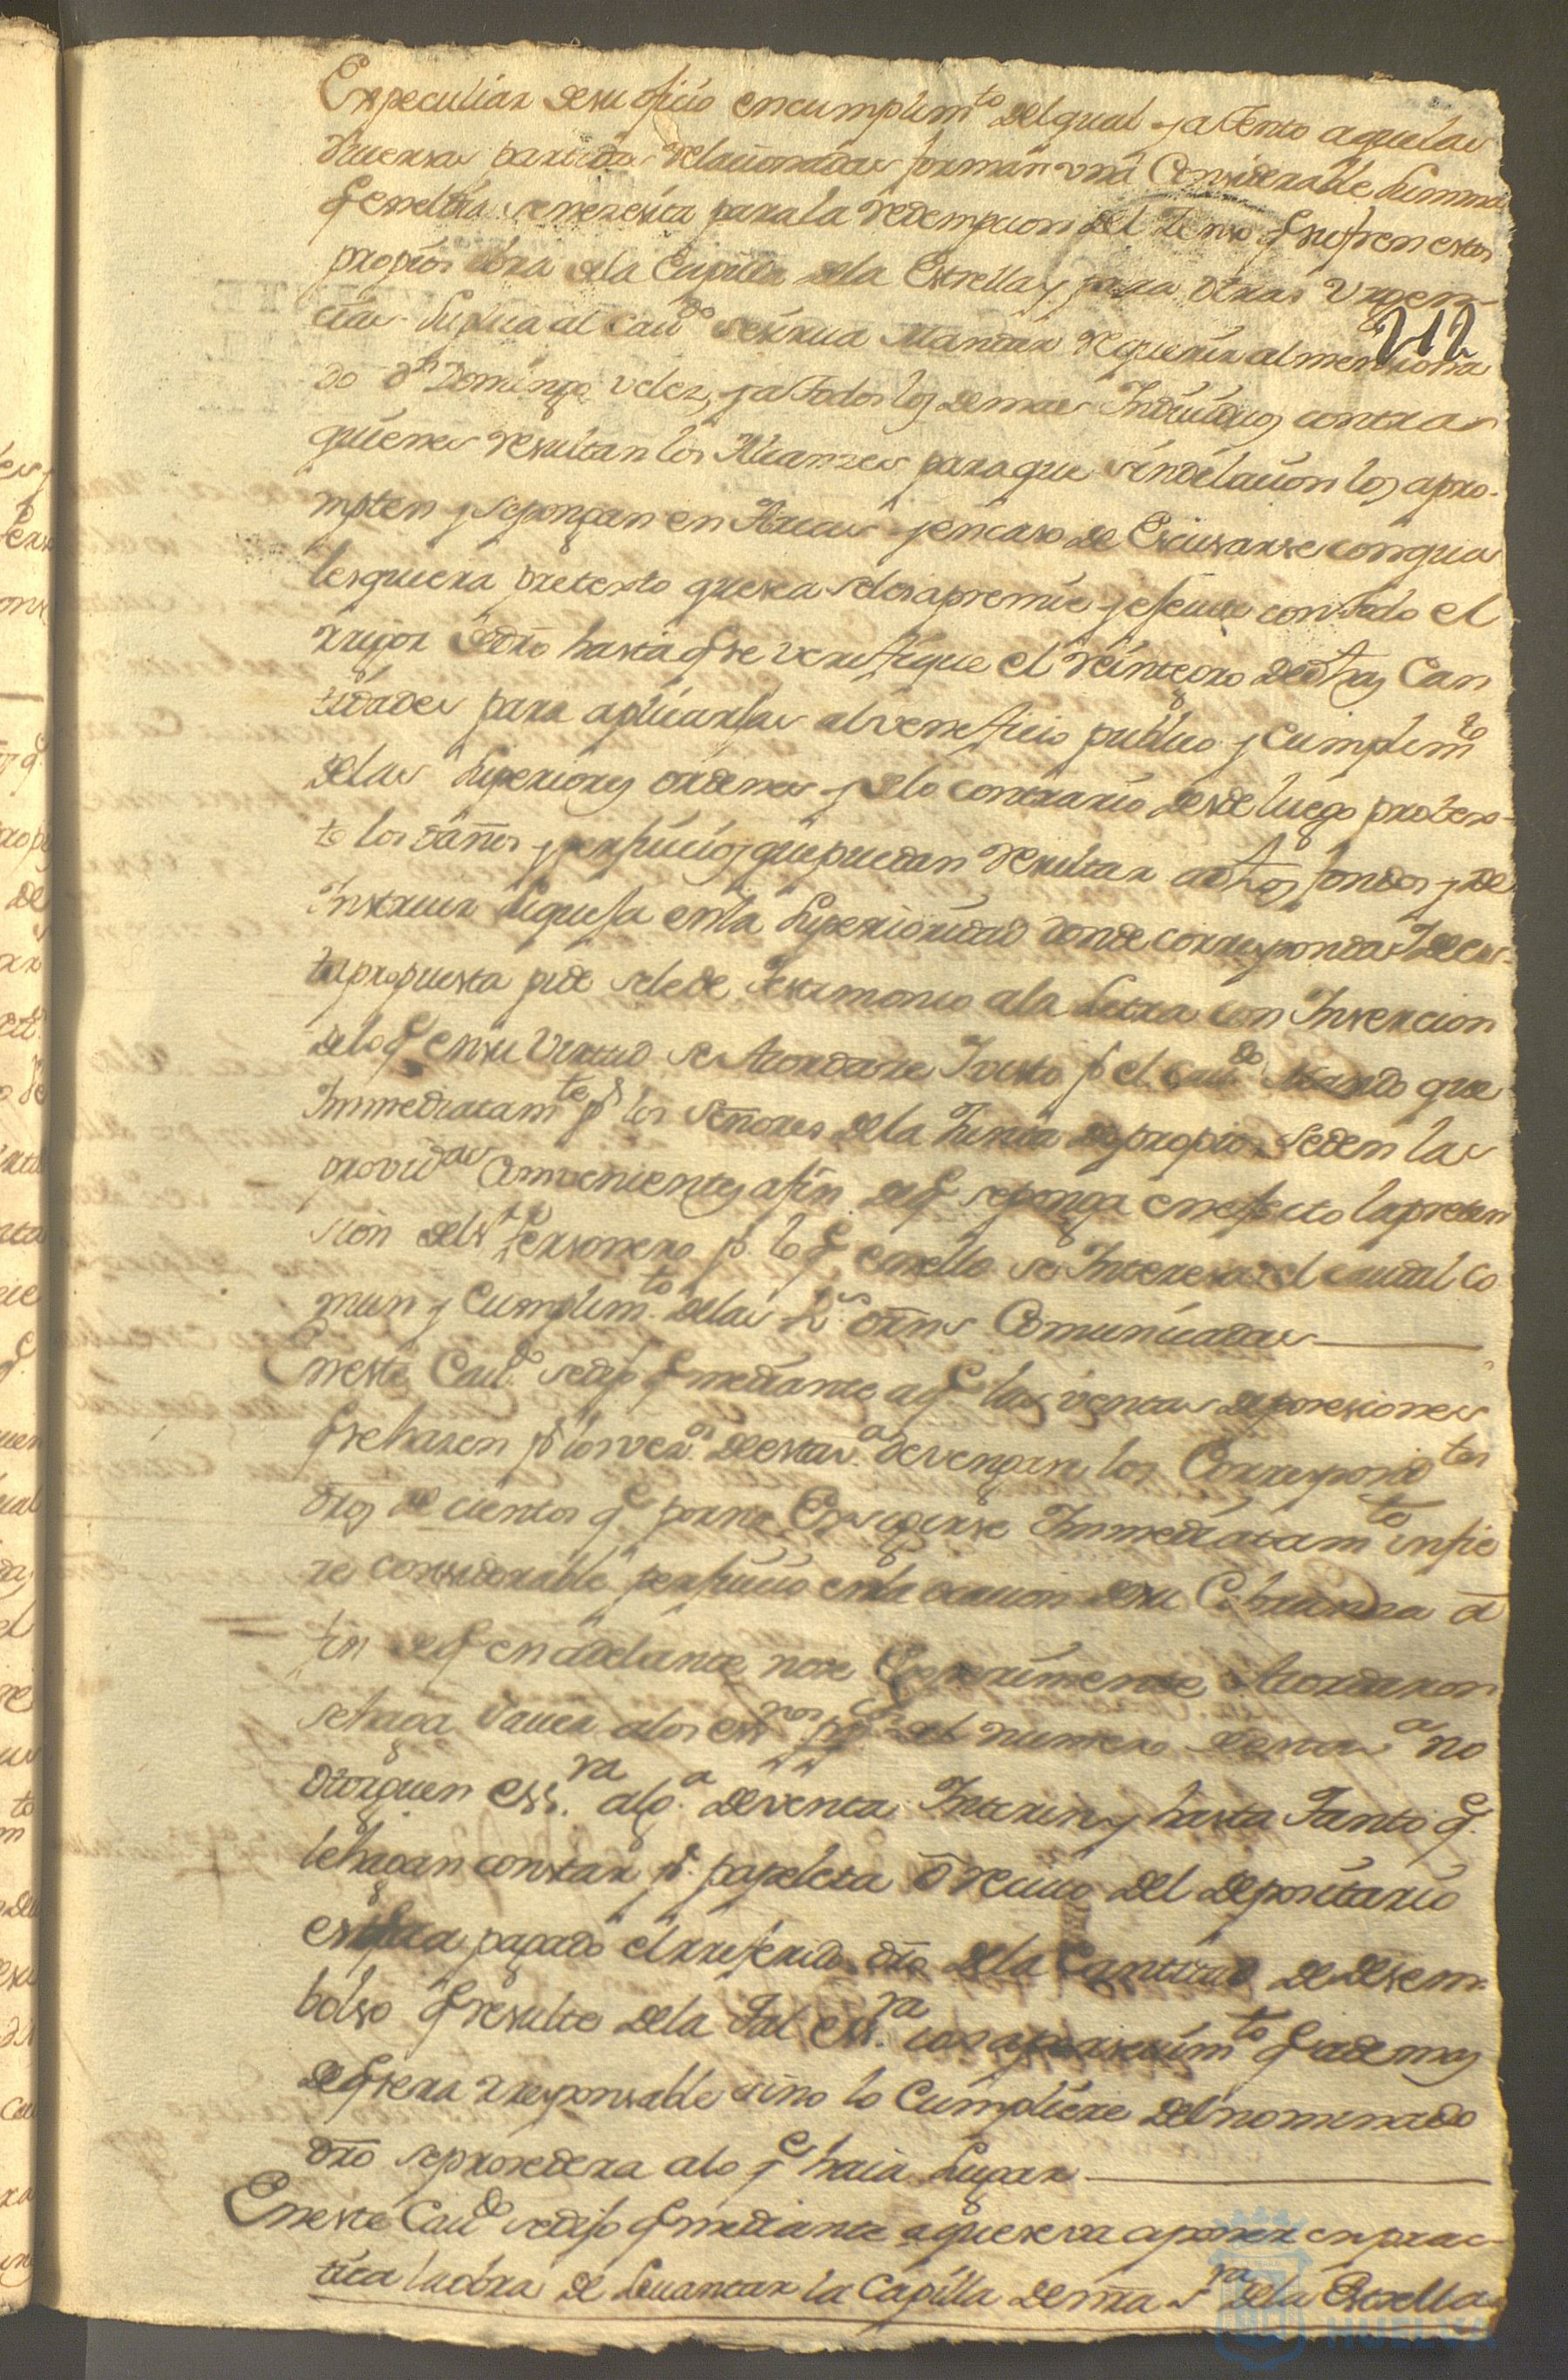 Expeculiar desu oficio encumplimto delqual y atento aquelas
diversas partidas relacionadas forman una Considerable Summa
qe enel dia se nezesita parala redempcion del Zenso qe sufren estos
propios obra dela Capilla dela Estrella y para otras Urgen-
cias Suplica al Cavdo sesirua Mandar requerir almenciona
212
do Dn Domingo Velez, y atodos los demas Indiuiduos contra
quienes resultan los Alcanzes paraque sindilacion los apro-
mpten y sepongan en Arcas y encaso de Escusarse conqua
lesquiera pretexto quesea selesapremie y execute contodo el
rrigor dedro hasta qe se verifique el reintegro dedhas Can
tidades para aplicarlas albeneficio publico y Cumplimto
delas Superiores ordenes y delo contrario desde luego protex-
to los daños y perjuicios quepuedan resultar adhos fondos y de
Instruir suquexa enla Superioridad donde corresponda Ydees-
tapropuesta pide sele de Testimonio ala Letra con Insercion
delo qe ensu Virtud se Acordare Yvisto pr el Cavdo Mando que
Immediatamte pr los Señores dela Junta depropios seden las
provids Convenientes afin deqe seponga enefecto lapreten
sion del Sr Personero pr lo qe enello se Interesa el caudal co
mun y Cumplimto delas Rs ordns Comunicadas
Eneste Cavdo sedijo qe mediante aqe las ventas deposesiones
qe sehazen pr losvezos deestava devengan los Correspondtes
dros de cientos qe porno Exsigirse Immediatamte infie
re considerable perjuicio enla ocacion desu Cobranza a
fin deqe enadelante nose Experimente Acordaron
sehaga saver alos essnos ppcos del numero deestava no
otorguen essra alga deventa Interin y hasta Tanto qe
lehagan constar pr papeleta o reciuo del depositario
pagado elrreferido dro dela Cantidad de desem-
bolso qe resulte dela Tal essra con apersevimto qe ademas
deqe sera rresponsable sino lo Cumpliere delnomenado
dro seprosedera alo qe haia Lugar
Eneste Cavdo sedijo qe mediante aqueseva aponer enprac-
tica laobra de Levantar la Capilla denra Sra dela Estrella
HUELVA